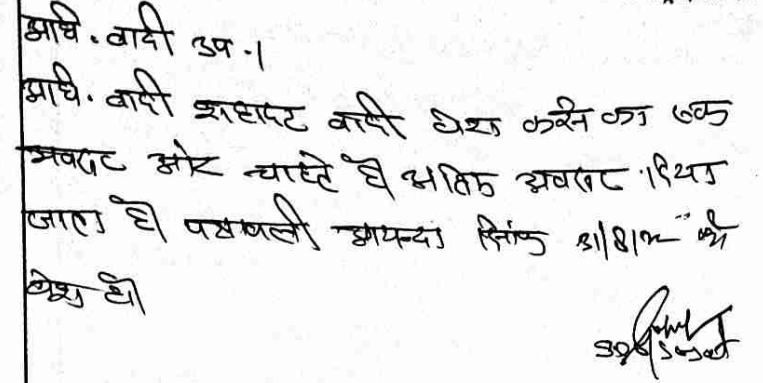 अधि. वादी उप.।
अधि. वादी शहादत वादी पेश करने का एक
अवसर और चाहते है अंतिम अवसर दिया
जाता है। पत्रावली आयन्दा दिनांक को
पेश हो